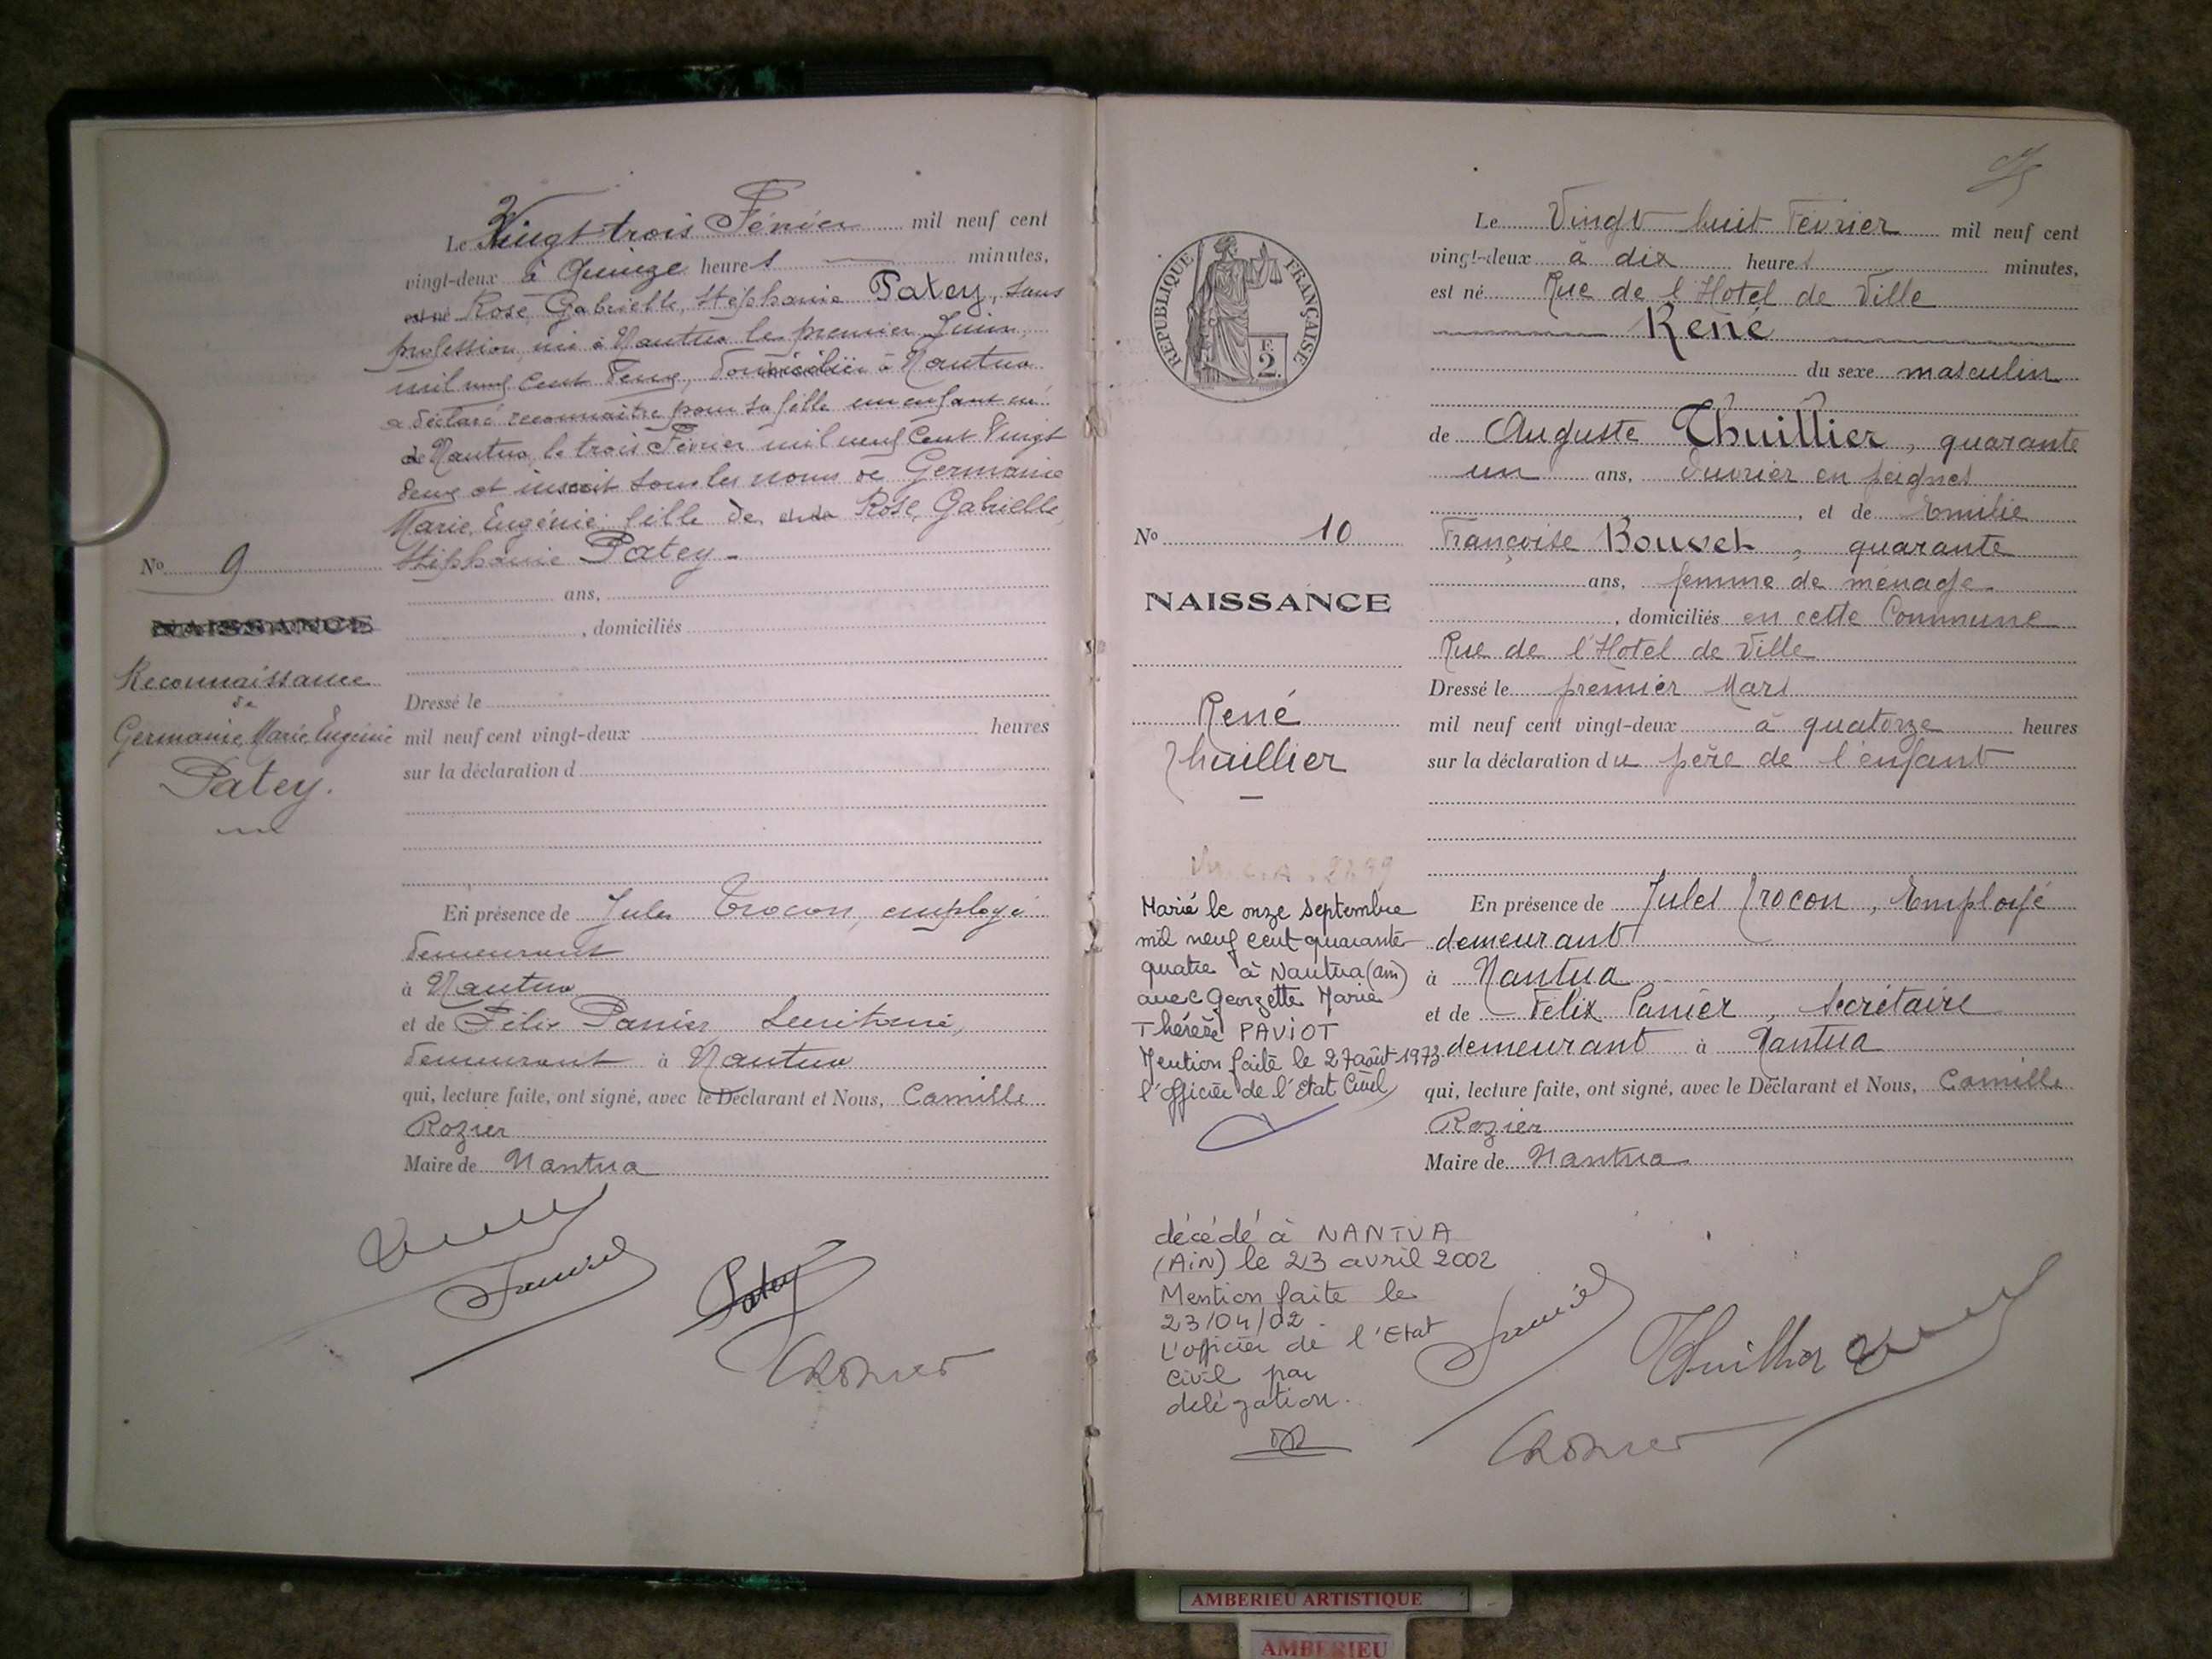 Le Vingt trois Février mil neuf cent
vingt-deux à Quinze heures — minutes,
est né Rose Gabrielle, Stéphanie Patey, sans
profession, née à Nantua le premier Juin
mil neuf cent deux, domiciliée à Nantua
a déclaré reconnaître pour sa fille un enfant né
à Nantua, le trois Février mil neuf Cent Vingt
deux et inscrit sous les noms de Germaine
Marie, Eugénie, fille de et de Rose, Gabrielle,
Stéphanie Patey -
No 9
ans,
NAISSANCE
, domiciliés
Reconnaissance
de
Germaine, Marie, Eugénie
Patey.
Dressé le
mil neuf cent vingt-deux heures
sur la déclaration d
En présence de Jules Crocon, employé
demeurant
à Nantua
et de Félix Panier Secrétaire,
demeurant à Nantua
qui, lecture faite, ont signé, avec le Déclarant et Nous, Camille
Rozier
Maire de Nantua
Patey
RÉPUBLIQUE FRANÇAISE
F.
2.
Le Vingt huit Février mil neuf cent
vingt-deux à dix heures minutes,
est né Rue de l'Hotel de Ville
René
du sexe masculin
de Auguste Thuillier, quarante
un ans, Ouvrier en peignes
, et de Emilie
Françoise Bouvet, quarante
ans, femme de ménage
, domiciliés en cette Commune
Rue de l'Hotel de Ville
Dressé le premier Mars
mil neuf cent vingt-deux à quatorze heures
sur la déclaration du père de l'enfant
No 10
NAISSANCE
René
Thuillier
Marié le onze septembre
mil neuf cent quarante
quatre à Nantua (ain)
avec Georgette Marie
Thérèse PAVIOT
Mention faite le 27 août 1973
l'officier de l'Etat Civil
En présence de Jules Crocon, Employé
demeurant
à Nantua
et de Félix Panier, Secrétaire
demeurant à Nantua
qui, lecture faite, ont signé, avec le Déclarant et Nous, Camille
Rozier
Maire de Nantua
décédé à NANTUA
(AiN) le 23 avril 2002
Mention faite le
23/04/02.
L'officier de l'Etat
civil par
délégation.
Thuillier
AMBERIEU ARTISTIQUE
AMBERIEU